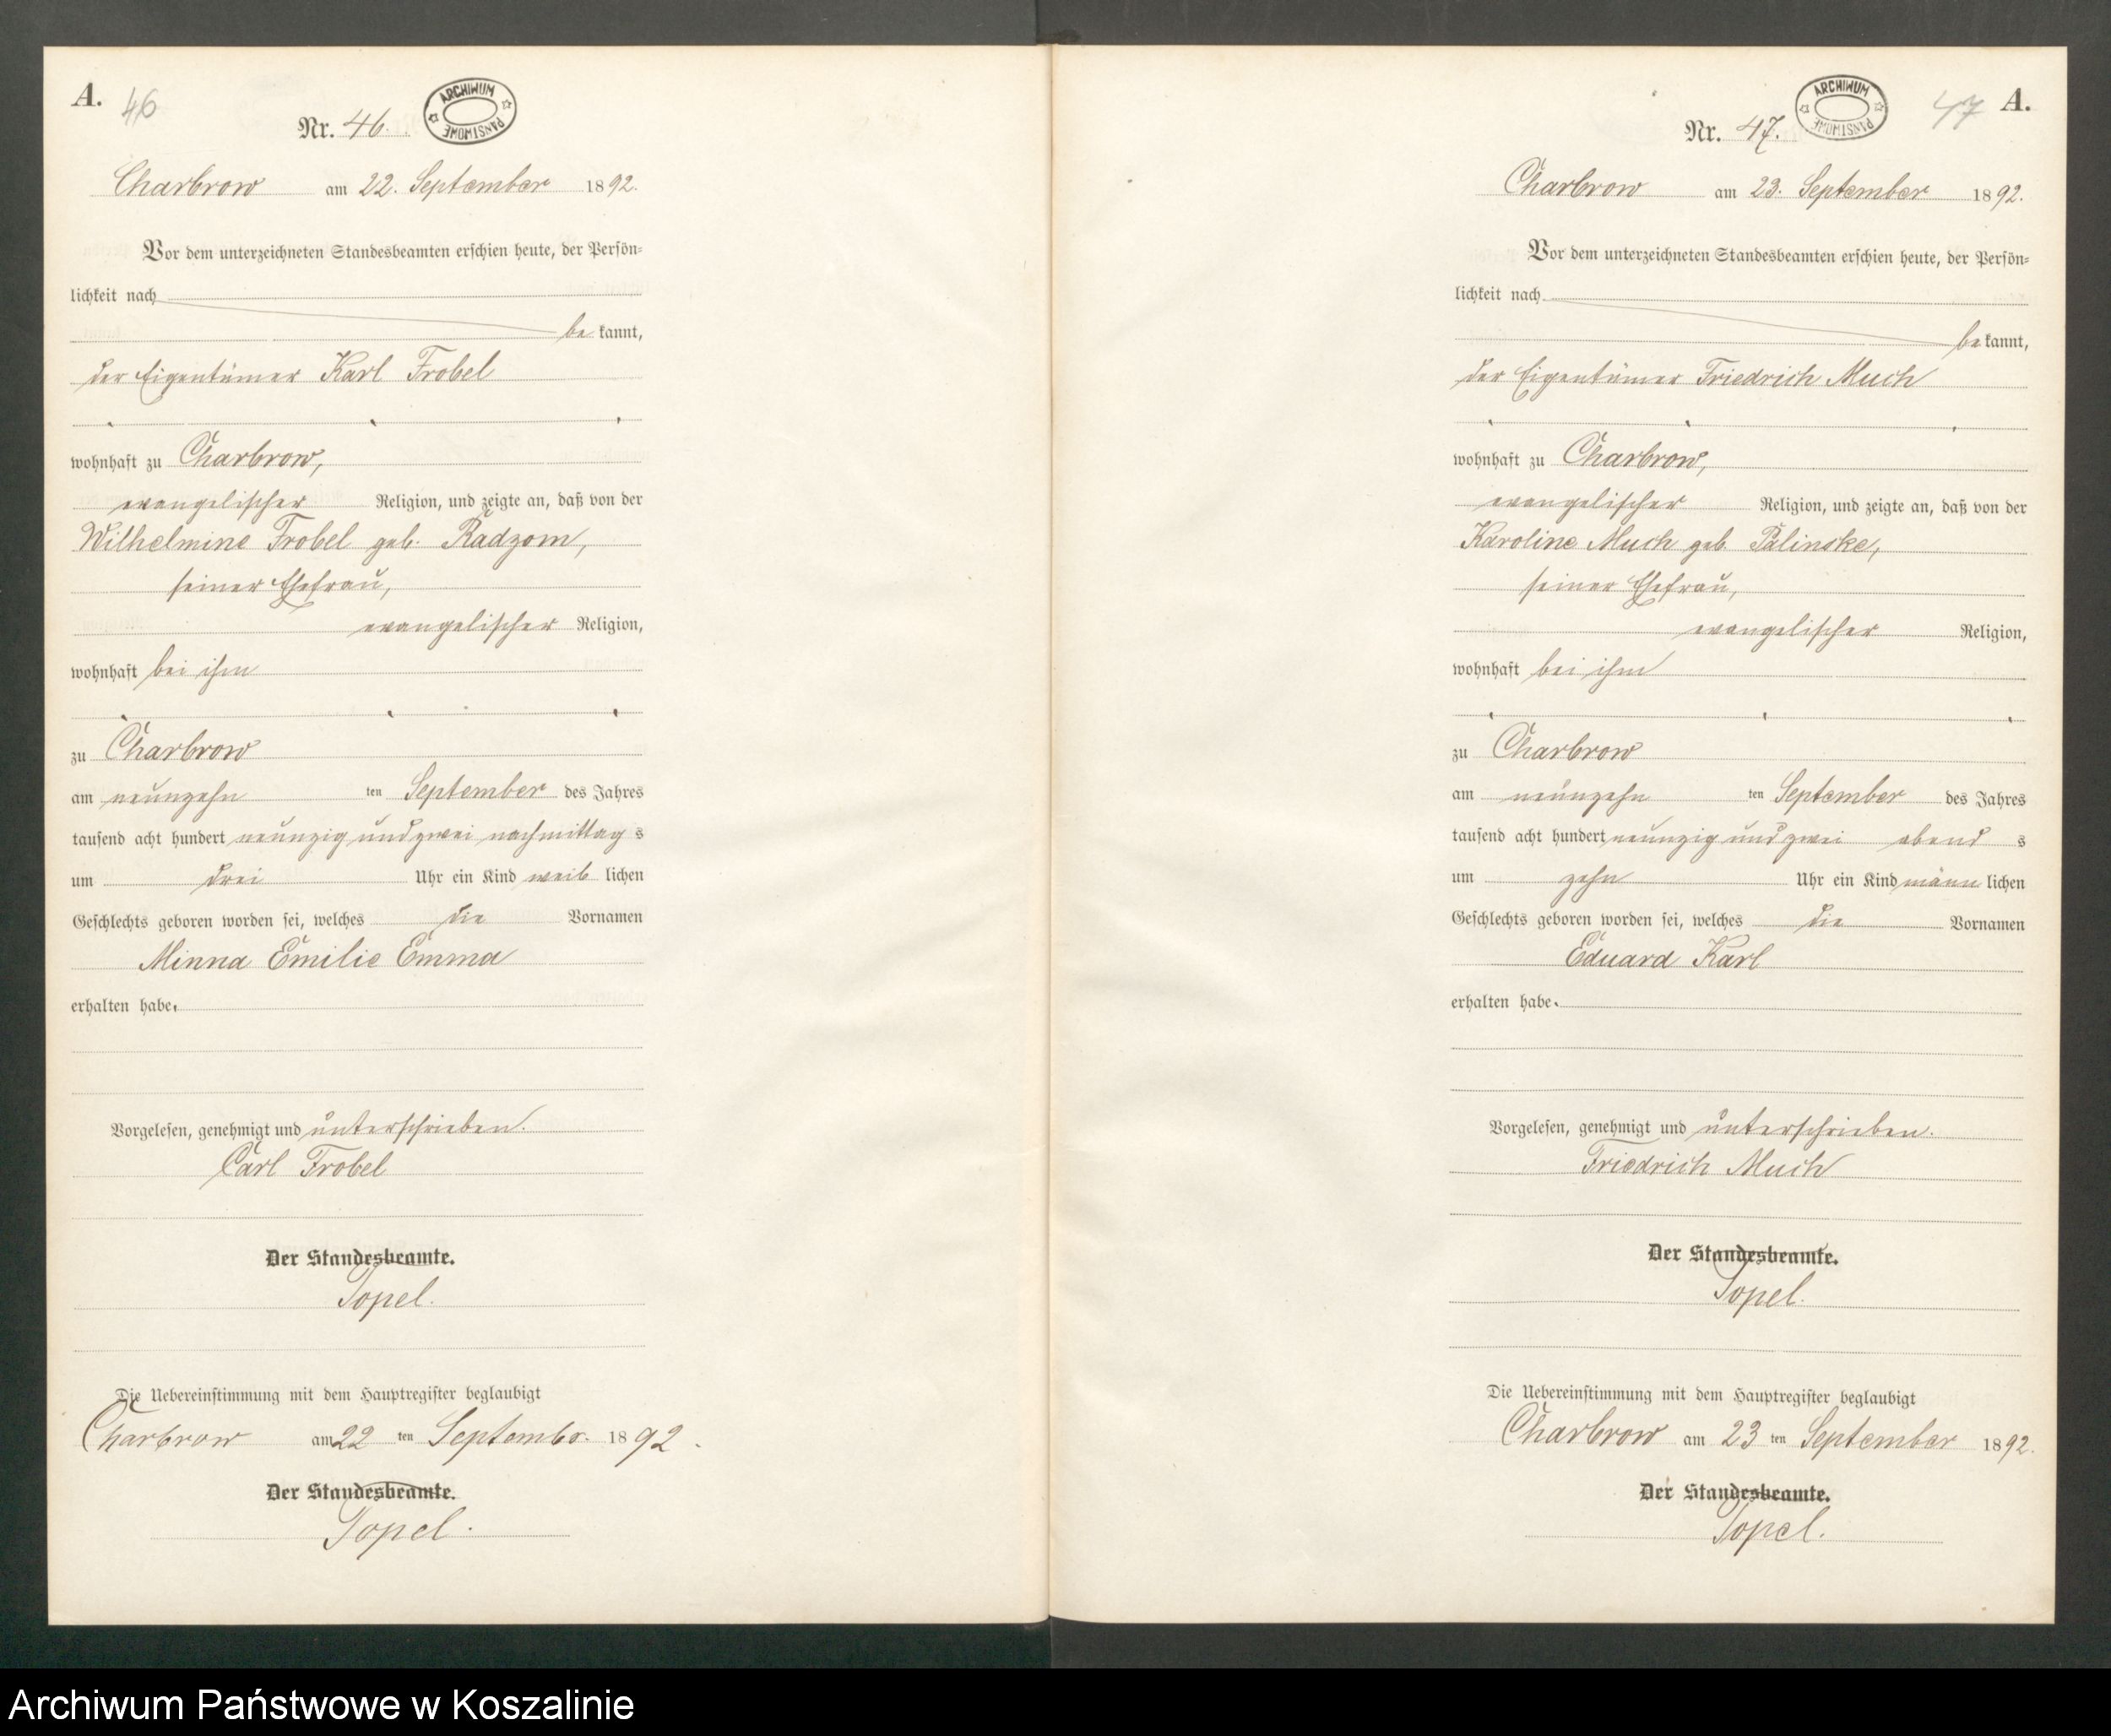 A.
46
Nr. 46.
ARCHIWUM PAŃSTWOWE
Charbrow am 22. September 1892.
Vor dem unterzeichneten Standesbeamten erschien heute, der Persön-
lichkeit nach
be kannt,
der Eigentümer Karl Frobel
wohnhaft zu Charbrow,
evangelischer Religion, und zeigte an, daß von der
Wilhelmine Frobel geb. Radzom,
seiner Ehefrau,
evangelischer Religion,
wohnhaft bei ihm
zu Charbrow
am neunzehn ten September des Jahres
tausend acht hundert neunzig und zwei nachmittag s
um drei Uhr ein Kind weib lichen
Geschlechts geboren worden sei, welches die Vornamen
Minna Emilie Emma
erhalten habe.
Vorgelesen, genehmigt und unterschrieben.
Carl Frobel
Der Standesbeamte.
Topel.
Die Uebereinstimmung mit dem Hauptregister beglaubigt
Charbrow am 22 ten September 1892.
Der Standesbeamte.
Topel.
47 A.
Nr. 47.
ARCHIWUM PAŃSTWOWE
Charbrow am 23. September 1892.
Vor dem unterzeichneten Standesbeamten erschien heute, der Persön-
lichkeit nach
be kannt,
der Eigentümer Friedrich Much
wohnhaft zu Charbrow,
evangelischer Religion, und zeigte an, daß von der
Karoline Much geb. Palinske,
seiner Ehefrau,
evangelischer Religion,
wohnhaft bei ihm
zu Charbrow
am neunzehn ten September des Jahres
tausend acht hundert neunzig und zwei abend s
um zehn Uhr ein Kind männ lichen
Geschlechts geboren worden sei, welches die Vornamen
Eduard Karl
erhalten habe.
Vorgelesen, genehmigt und unterschrieben.
Friedrich Much
Der Standesbeamte.
Topel.
Die Uebereinstimmung mit dem Hauptregister beglaubigt
Charbrow am 23 ten September 1892.
Der Standesbeamte.
Topel.
Archiwum Państwowe w Koszalinie